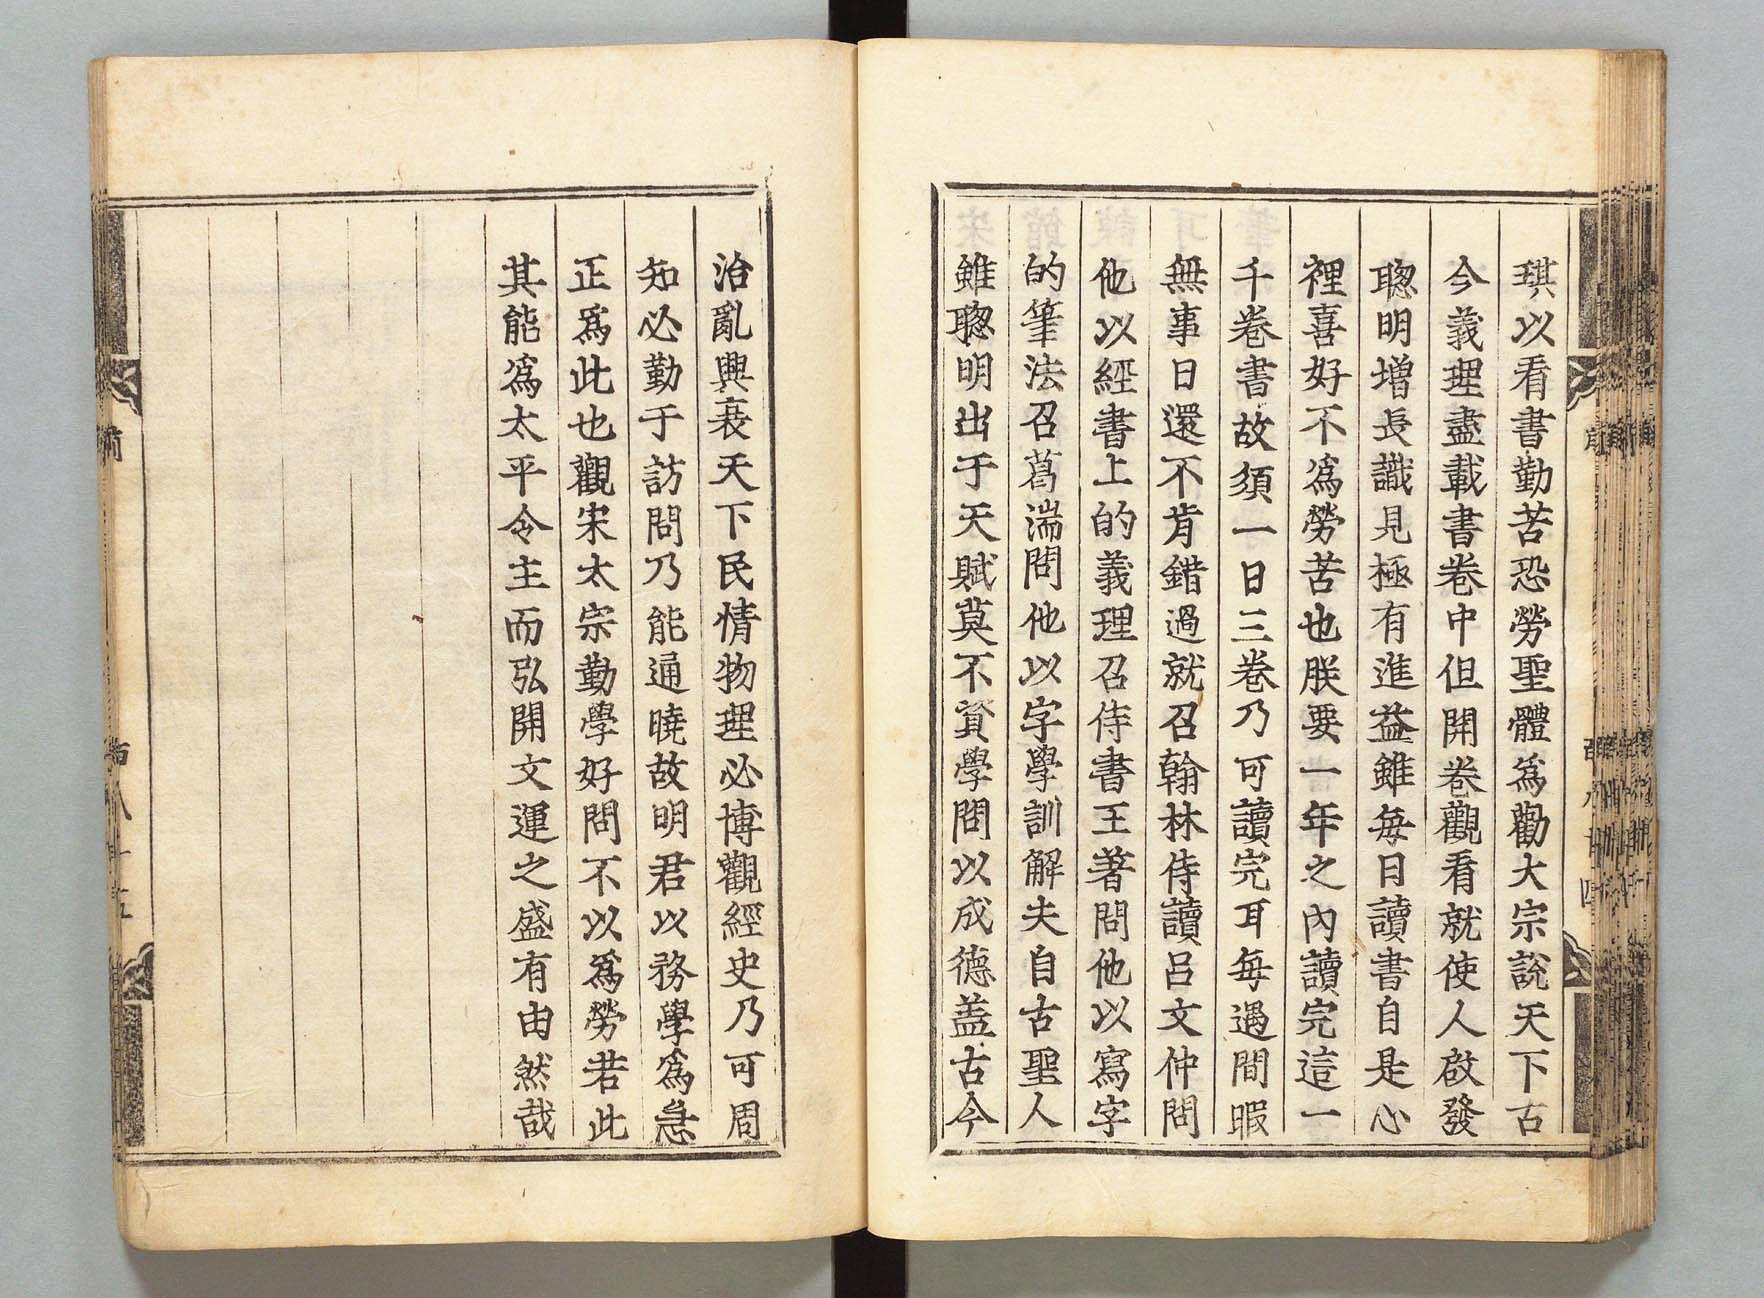 琪以看書勤苦恐勞聖體為勸大宗說天下古
今義理盡載書卷中但開卷觀看就使人啟發
聰明增長識見極有進益雖每日讀書自是心
裡喜好不為勞苦也朕要一年之內讀完這一
千卷書故須一日三卷乃可讀完耳每遇間暇
無事日還不肯錯過就召翰林侍讀呂文仲問
他以經書上的義理召侍書王著問他以寫字
的筆法召葛湍問他以字學訓解夫自古聖人
雖聰明出于天賦莫不資學問以成德盖古今
治亂興衰天下民情物理必博觀經史乃可周
知必勤于訪問乃能通曉故明君以務學為急
正為此也觀宋太宗勤學好問不以為勞若此
其能為太平令主而弘開文運之盛有由然哉